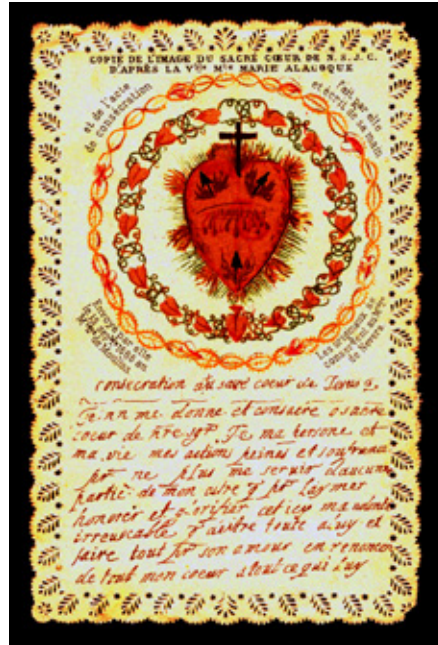 COPIE DE L'IMAGE DU SACRÉ CŒUR DE N. S. J. C.
D'APRÈS LA Vble Mte MARIE ALACOQUE
et de l'acte
de consécration
fait par elle
et écrit de sa main
Envoyé par elle
Les originaux se
de Nevers
consecration au sacré coeur de Jesus
Je nn me donne et consacre o sacré
coeur de nre sgr J c ma persone et
ma vie mes actions peines et soufrance
pr ne plus me servir d'aucune
partie de mon estre q pr l'aymer
honorer et glorifier cet icy ma volonté
irreuocable q d'estre toute a luy et
faire tout pr son amour en renoncen
de tout mon coeur a tout ce qui luy